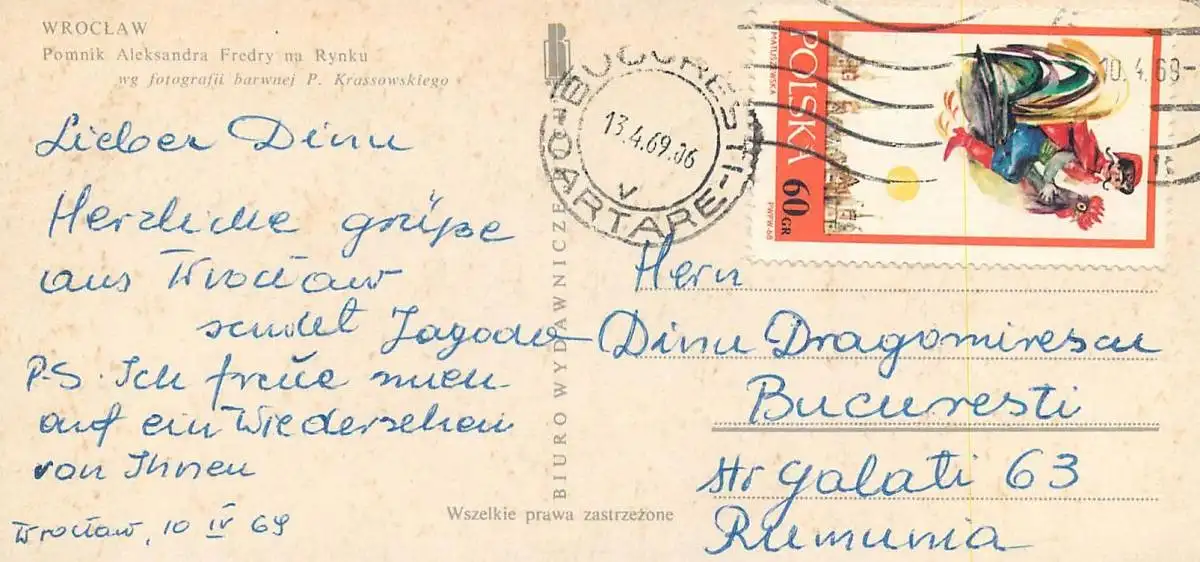 WROCŁAW
Pomnik Aleksandra Fredry na Rynku
wg fotografii barwnej P. Krassowskiego
Lieber Dinu
Herzliche grüße
aus Wrocław
sendet Jagoda
P.S. Ich freue mich
auf ein Wiedersehen
von Ihnen
Wrocław, 10 IV 69
BIURO WYDAWNICZE
Wszelkie prawa zastrzeżone
BUCUREȘTI
13.4.69.06
V
CARTARE
10.4.69
POLSKA 60 GR
MATUSZEWSKA
PWPW-68
Hern
Dinu Dragomirescu
Bucuresti
str Galati 63
Rumunia